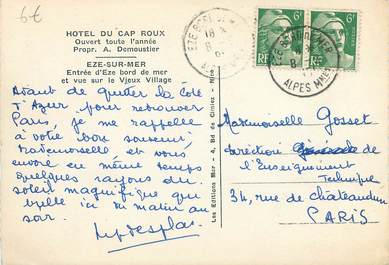 6€
HOTEL DU CAP ROUX
Ouvert toute l'année
Propr. A. Demoustier
EZE-SUR-MER
Entrée d'Eze bord de mer
et vue sur le Vieux Village
Avant de quitter la Côte
d'Azur pour retrouver
Paris, je me rappelle
à votre bon souvenir
Mademoiselle et vous
envoie en même temps
quelques rayons du
soleil magnifique qui
brille ici du matin au
soir.
Les Editions Mar - 4, Bd de Cimiez - Nice
6F
6F
RF
ALPES MMES
Mademoiselle Gosset
Direction Générale de
l'Enseignement
Technique
34, rue de Châteaudun
PARIS